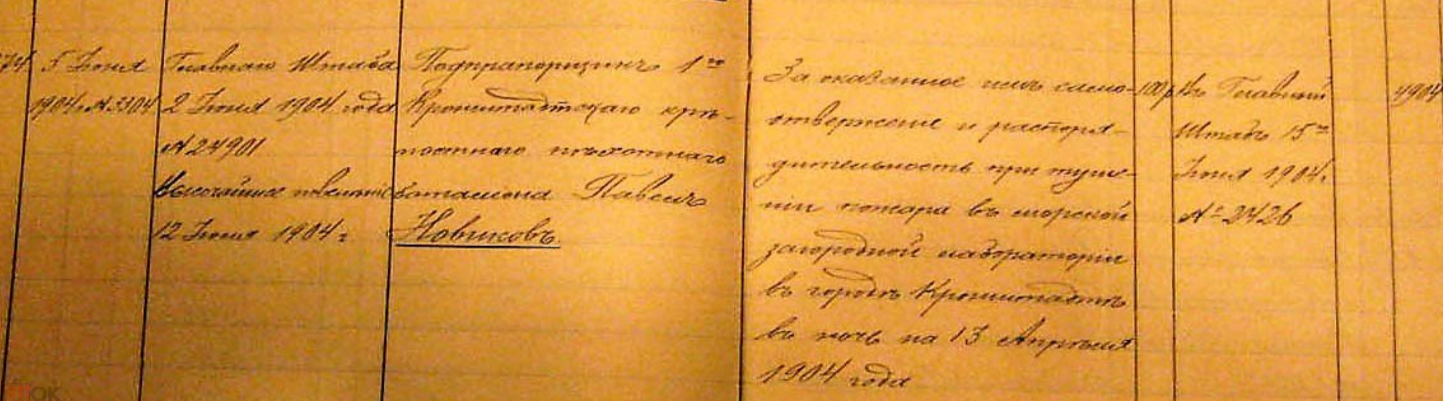 74
5 Іюня
1904 г. № 3304
Главнаго Штаба
2 Іюня 1904 года
№ 24901
Высочайшее повеленіе
12 Іюня 1904 г.
Подпрапорщикъ 1го
Кронштадтскаго крѣ-
постнаго пѣхотнаго
баталіона Павелъ
Новиковъ.
За оказанное имъ само-
отверженіе и распоря-
дительность при туше-
ніи пожара въ морской
загородной лабораторіи
въ городѣ Кронштадтѣ
въ ночь на 13 Апрѣля
1904 года
100 р.
Въ Главный
Штабъ 15го
Іюня 1904 г.
№ 2426
1904